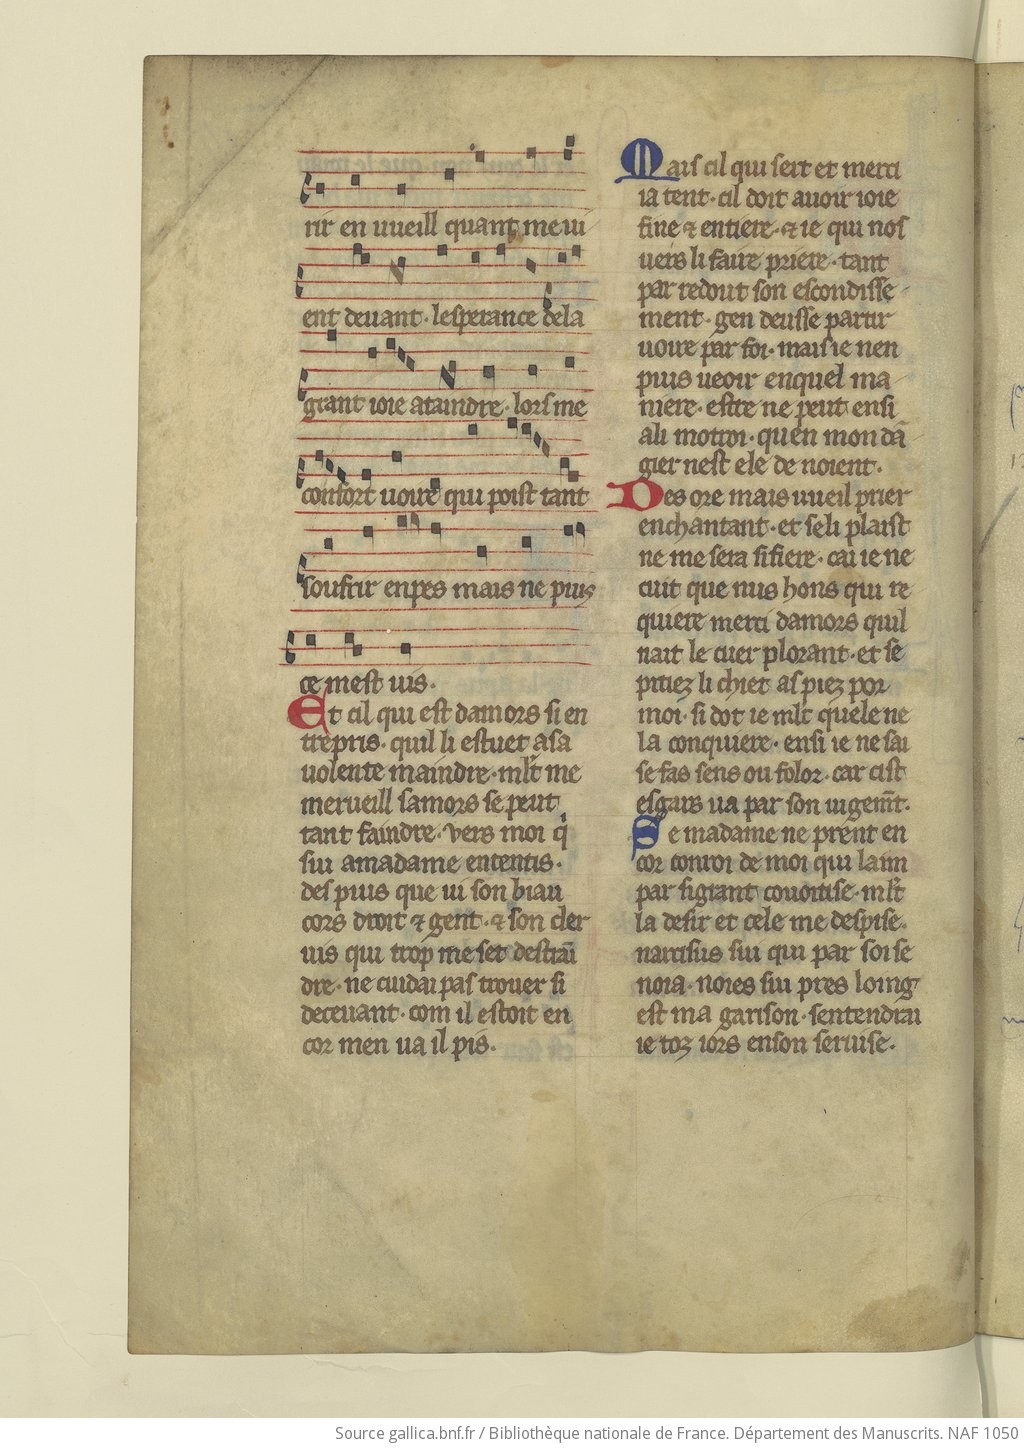 rir en uueill quant me ui
ent deuant· lesperance dela
grant ioie ataindre· lors me
confort uoire qui poist tant
soufrir enpes mais ne puis
ce mest uis·
Et cil qui est damors si en
trepris· quil li estuet asa
uolente maindre· mlt me
merueill samors se peut
tant faindre· vers moi q̇
sui amadame ententis·
des puis que ui son biau
cors droit ⁊ gent· ⁊ son cler
uis qui trop me set destrai̅
dre· ne cuidai pas trouer si
deceuant· com il estoit en
cor men ua il pis·
Mais cil qui sert et merci
ia tent· cil doit auoir ioie
fine ⁊ entiere· ⁊ ie qui nos
uers li faire priere· tant
par redout son escondisse
ment· gen deusse partir
uoire par foi· mais ie nen
puis ueoir enquel ma
niere· estre ne peut ensi
ali motroi· quen mon da̅
gier nest ele de noient·
Des ore mais uueil prier
enchantant· et seli plaist
ne me sera si fiere· car ie ne
cuit que nus hons qui re
quiere merci damors quil
nait le cuer plorant· et se
pitiez li chiet as piez por
moi· si dot ie mlt quele ne
la conquiere· ensi ie ne sai
se fas sens ou folor· car cist
esgars ua par son iugem̅t·
Se madame ne prent en
cor conroi de moi qui laim
par si grant couoitise· mlt
la desir et cele me despise·
narcisus sui qui par soi se
noia· noies sui pres loing
est ma garison· sentendrai
ie toz iors enson seruise·
Source gallica.bnf.fr / Bibliothèque nationale de France. Département des Manuscrits. NAF 1050